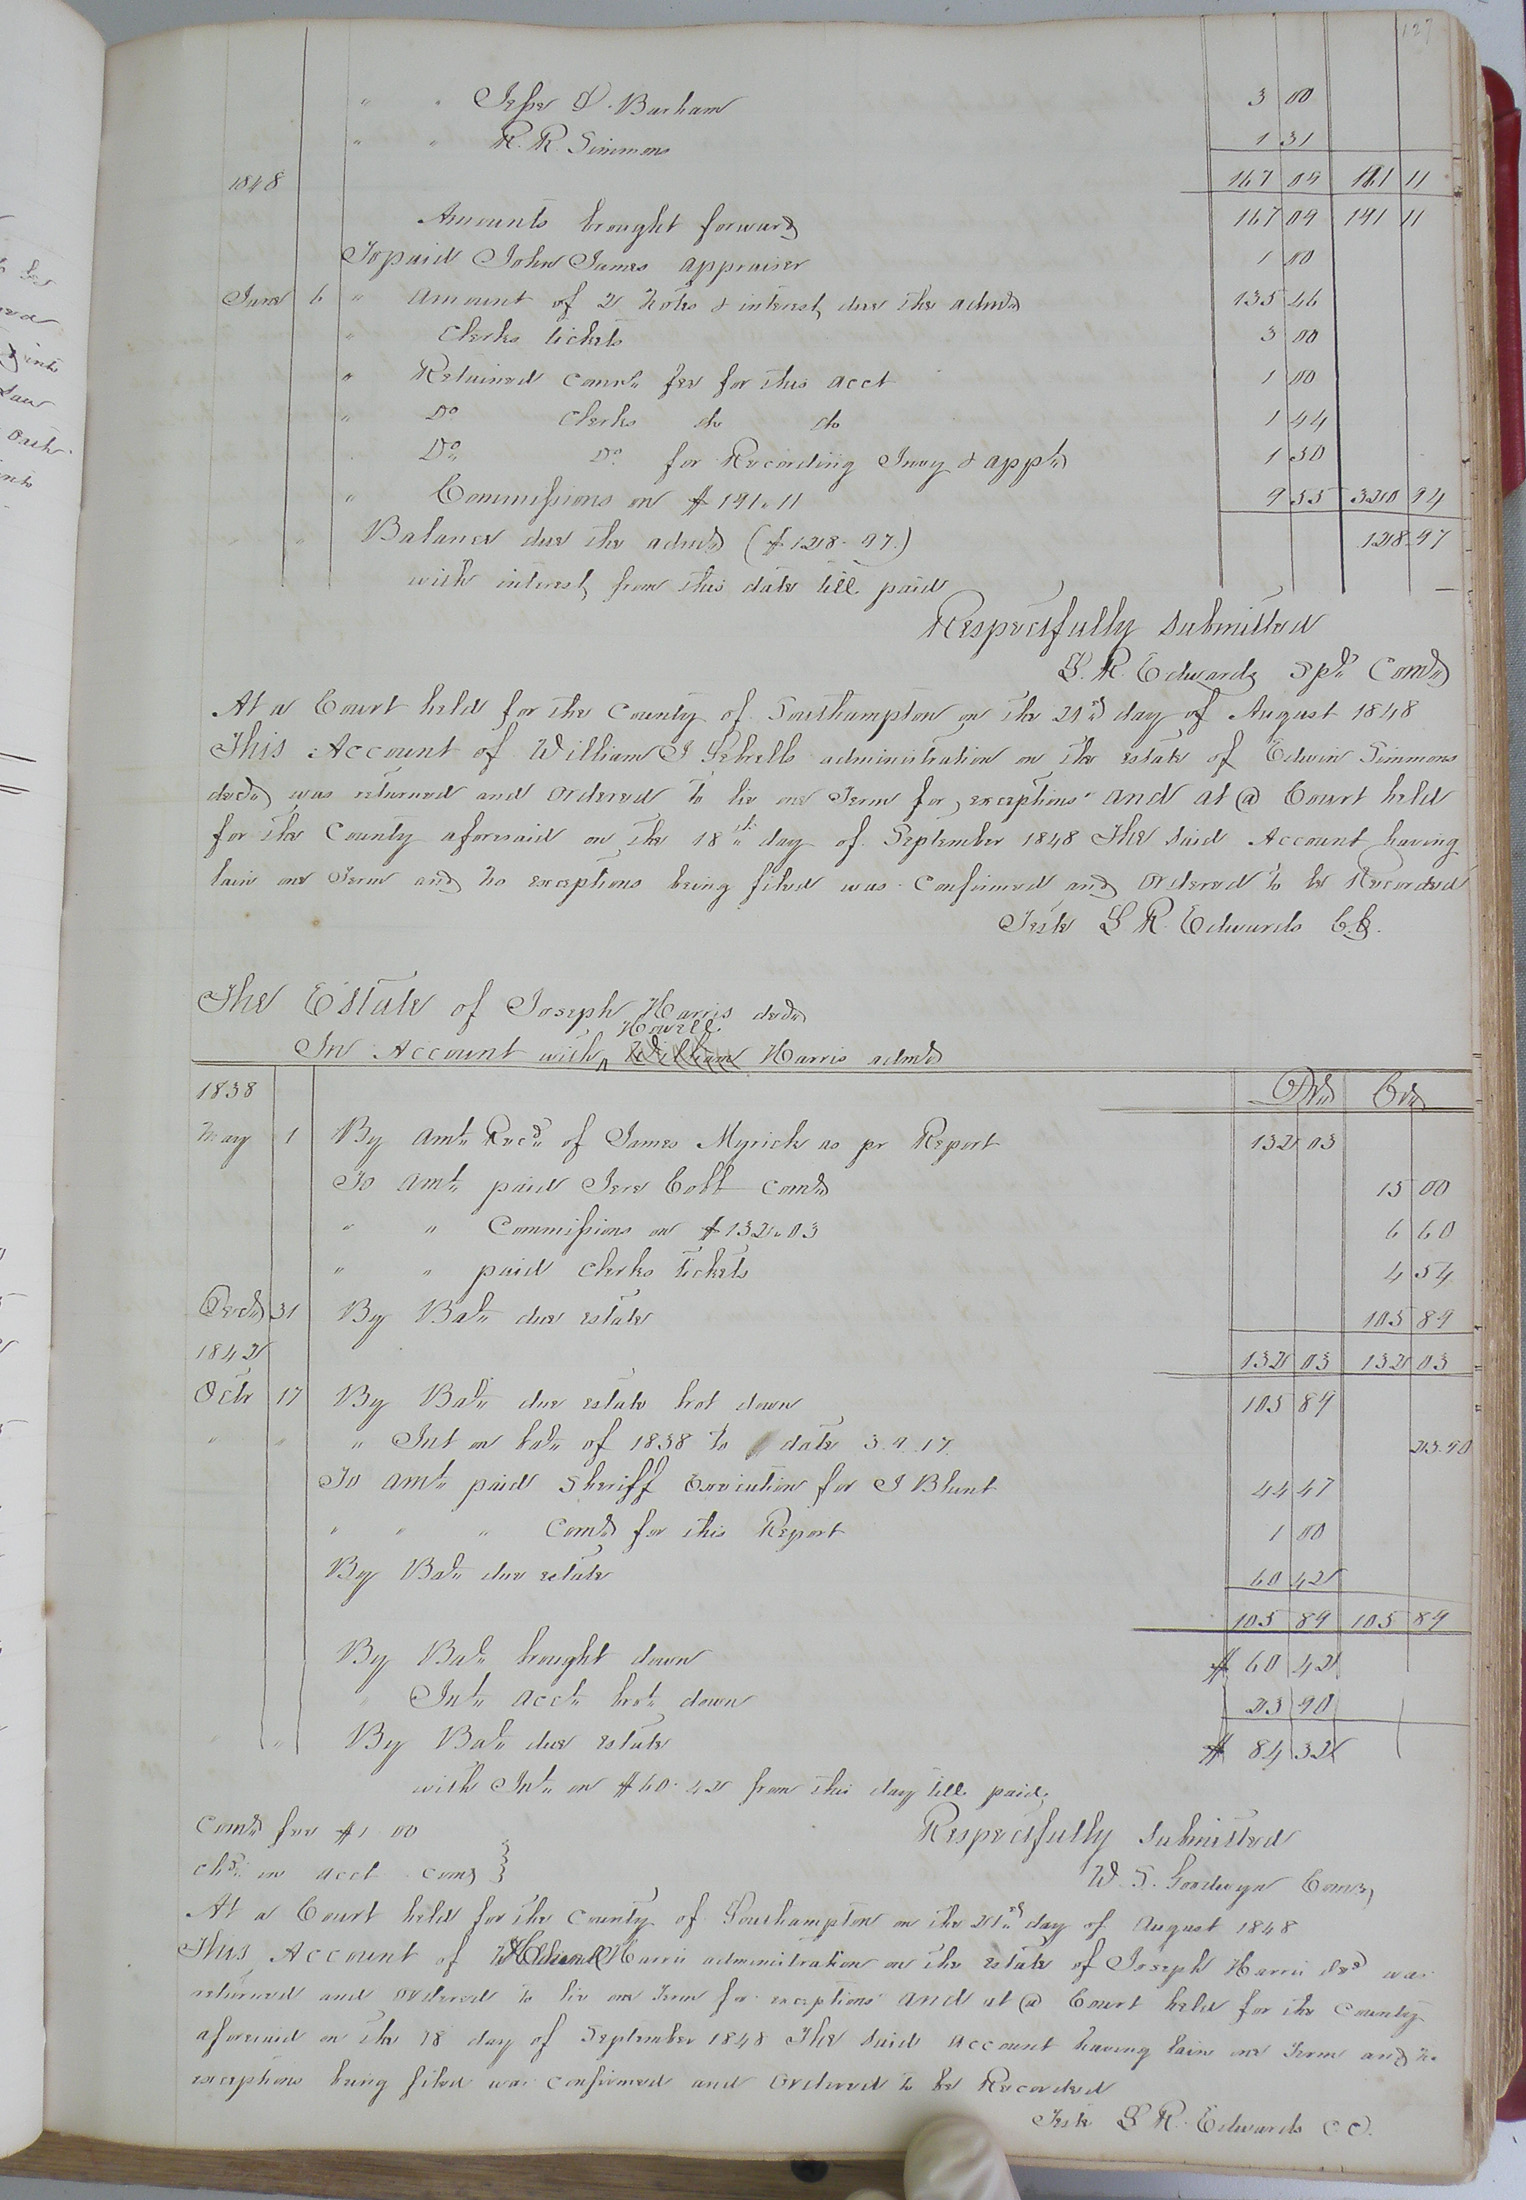 127
" " Jesse D. Barham 3 00
" " R. R. Simmons 1 31
1848 167 09 191 11
Amounts brought forward 167 09 191 11
To paid John James appraiser 1 00
June 6 " Amount of 2 Notes & interest due the admr 135 46
" Clerks tickets 3 00
" Retained comrs fee for this acct 1 00
" Do Clerks do do 1 44
Do Do for Recording Invy & appt 1 50
" Commissions on $191.11 9 55 320 94
" " Balance due the admr ($128.97.) 128.97
with interest from this date till paid
Respectfully submitted
L. R. Edwards Spl Comr
At a Court held for the County of Southampton on the 21st day of August 1848
This Account of William J Sebrells administration on the estate of Edwin Simmons
decd was returned and ordered to lie one Term for exceptions and at a Court held
for the County aforesaid on the 18th day of September 1848 The said Account having
lain one Term and no exceptions being filed was confirmed and ordered to be Recorded
Teste L R. Edwards C.C.
The Estate of Joseph Harris decd
Howell
In Account with William Harris admr
1838 Dr Cr
May 1 By Amt Recd of James Myrick as pr Report 132 03
To Amt paid Jere Cobb comr 15 00
" " Commissions on $132.03 6 60
" " paid Clerks tickets 4 54
Decr 31 By Bal due estate 105 89
1842 132 03 132 03
Octr 17 By Bal due estate brot down 105 89
" " " Int on bal of 1838 to date 3.9.17. 23.90
To Amt paid Sheriff Execution for J Blunt 44 47
" " " Comr for this Report 1 00
By Bal due estate 60 42
105 89 105 89
By Bal brought down $ 60 42
" Int acct brot down 23 90
" " By Bal due estate $ 84 32
with Int on $60.42 from this day till paid
Comr fee $1 00
Respectfully submitted
chd in acct comr }
W. S. Goodwyn Comr
At a Court held for the County of Southampton on the 21st day of August 1848
This Account of Howell Harris administration on the estate of Joseph Harris decd was
returned and ordered to lie one Term for exceptions and at a Court held for the County
aforesaid on the 18 day of September 1848 The said account having lain one Term and no
exceptions being filed was confirmed and ordered to be Recorded
Teste L R. Edwards C.C.